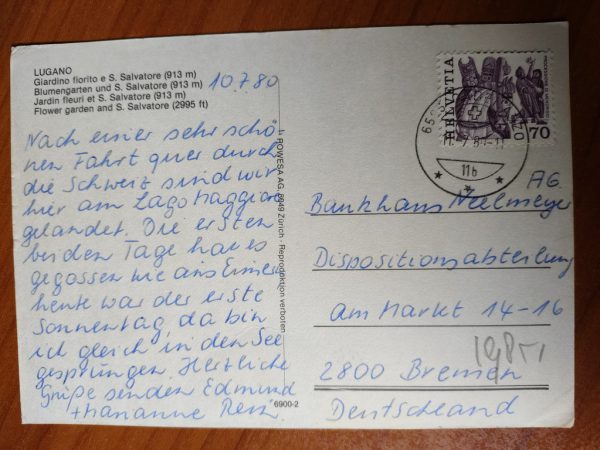 LUGANO
Giardino fiorito e S. Salvatore (913 m)
Blumengarten und S. Salvatore (913 m)
Jardin fleuri et S. Salvatore (913 m)
Flower garden and S. Salvatore (2995 ft)
10.7.80
Nach einer sehr schö
nen Fahrt quer durch
die Schweiz sind wir
hier am Lago Maggiore
gelandet. Die ersten
beiden Tage hat es
gegossen wie aus Eimern
heute war der erste
Sonnentag, da bin
ich gleich in den See
gesprungen. Herzliche
Grüße senden Edmund
+ Marianne
ROWESA AG, 8049 Zürich - Reproduktion verboten
6900-2
HELVETIA
70
11b
Bankhaus Neelmeyer
AG.
Dispositionsabteilung
am Markt 14-16
2800 Bremen
Deutschland